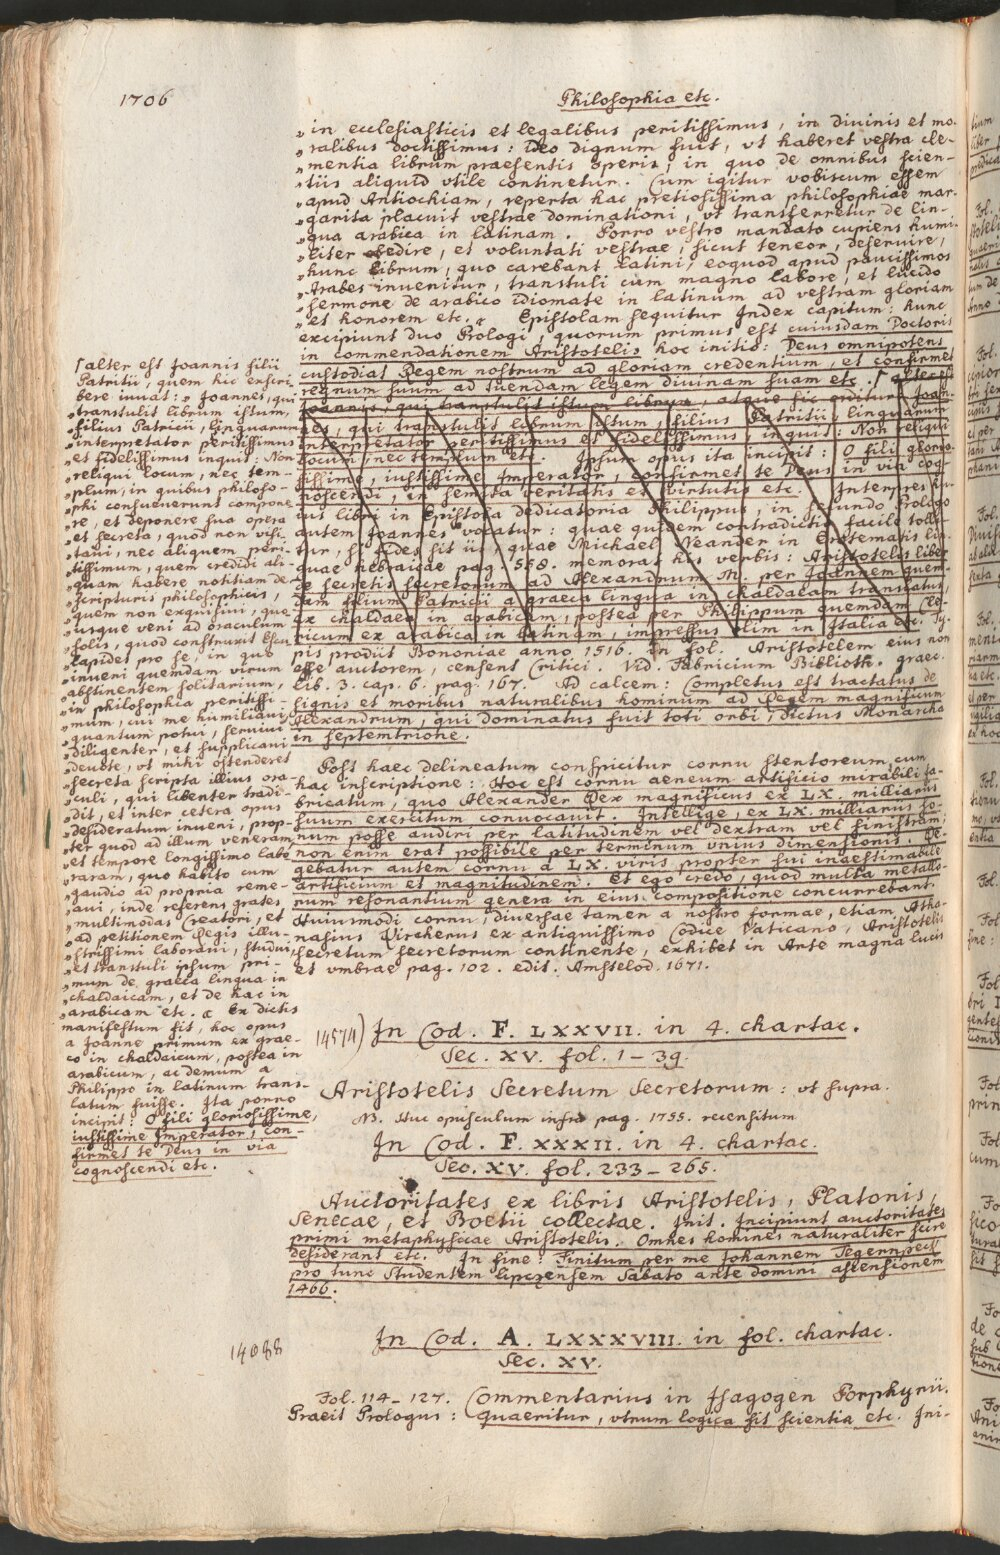 1706
Philosophia etc.
„in ecclesiasticis et legalibus peritissimus, in diuinis et mo-
„ralibus doctissimus: ideo dignum fuit, vt haberet vestra cle-
„mentia librum praesentis operis, in quo de omnibus scien-
„tiis aliquid vtile continetur. Cum igitur vobiscum essem
„apud Antiochiam, reperta hac pretiosissima philosophiae mar-
„garita placuit vestrae dominationi, vt transferretur de lin-
„gua arabica in latinam. Porro vestro mandato cupiens humi-
„liter obedire, et voluntati vestrae, sicut teneor, deseruire,
„hunc librum, quo carebant Latini, eoquod apud paucissimos
„Arabes inuenitur, transtuli cum magno labore, et lucido
„sermone de arabico idiomate in latinum ad vestram gloriam
„et honorem etc. „ Epistolam sequitur Index capitum: hunc
excipiunt duo Prologi, quorum primus est cuiusdam Doctoris
in commendationem Aristotelis hoc initio: Deus omnipotens
custodiat Regem nostrum ad gloriam credentium, et confirmet
regnum suum ad tuendam legem diuinam suam etc. / alter est
Joannis, qui transtulit istum librum, atque sic orditur: Joan-
nes, qui transtulit librum istum, filius Patritii, linguarum
interpretator peritissimus et fidelissimus, inquit: Non reliqui
locum, nec templum etc. Ipsum opus ita incipit: O fili glorio-
sissime, iustissime Imperator, confirmet te Deus in via cog-
noscendi, in semita veritatis et virtutis etc. Interpres hu-
ius libri in Epistola dedicatoria Philippus, in secundo Prologo
autem Joannes vocatur: quae quidem contradictio facile tolli-
tur, si fides sit iis, quae Michael Neander in Erotematis lin-
guae hebraicae pag. 558. memorat his verbis: Aristotelis liber
de secretis secretorum ad Alexandrum M. per Joannem quem-
dam filium Patricii a graeca lingua in chaldaeam translatus,
ex chaldaea in arabicam, postea per Philippum quemdam Cle-
ricum ex arabica in latinam, impressus olim in Italia etc. Ty-
pis prodiit Bononiae anno 1516. in fol. Aristotelem eius non
esse auctorem, censent Critici. Vid. Fabricium Biblioth. graec.
lib. 3. cap. 6. pag. 167. Ad calcem: Completus est tractatus de
signis et moribus naturalibus hominum ad Regem magnificum
Alexandrum, qui dominatus fuit toti orbi, dictus Monarcha
in septemtrione.
/alter est Joannis filii
Patritii, quem hic exscri-
bere iuuat: „ Joannes, qui
„transtulit librum istum,
„filius Patricii, linguarum
„interpretator peritissimus
„et fidelissimus inquit: Non
„reliqui locum, nec tem-
„plum, in quibus philoso-
„phi consueuerunt compone-
„re, et deponere sua opera
„et secreta, quod non visi-
„taui, nec aliquem peri-
„tissimum, quem credidi ali-
„quam habere notitiam de
„scripturis philosophicis,
„quem non exquisiui, quo-
„usque veni ad oraculum
„solis, quod construxit Escu-
„lapides pro se, in quo
„inueni quemdam virum
„abstinentem solitarium,
„in philosophia peritissi-
„mum, cui me humiliaui
„quantum potui, seruiui
„diligenter, et supplicaui
„deuote, vt mihi ostenderet
„secreta scripta illius ora-
„culi, qui libenter tradi-
„dit, et inter cetera opus
„desideratum inueni, prop-
„ter quod ad illum veneram,
„et tempore longissimo labo-
„raram, quo habito cum
„gaudio ad propria reme-
„aui, inde referens grates
„multimodas Creatori, et
„ad petitionem Regis illu-
„strissimi laboraui, studui,
„et transtuli ipsum pri-
„mum de graeca lingua in
„chaldaicam, et de hac in
„arabicam etc. „ Ex dictis
manifestum fit, hoc opus
a Joanne primum ex grae-
co in chaldaicum, postea in
arabicum, ac demum a
Philippo in latinum trans-
latum fuisse. Ita porro
incipit: O fili gloriosissime,
iustissime Imperator, con-
firmet te Deus in via
cognoscendi etc.
Post haec delineatum conspicitur cornu stentoreum cum
hac inscriptione: Hoc est cornu aeneum artificio mirabili fa-
bricatum, quo Alexander Rex magnificus ex LX. milliariis
suum exercitum conuocauit. Intellige, ex LX. milliariis so-
num posse audiri per latitudinem vel dextram vel sinistram;
non enim erat possibile per terminum vnius dimensionis. Re-
gebatur autem cornu a LX. viris propter sui inaestimabile
artificium et magnitudinem. Et ego credo, quod multa metallo-
rum resonantium genera in eius compositione concurrebant.
Huiusmodi cornu, diuersae tamen a nostro formae, etiam Atha-
nasius Kircherus ex antiquissimo Codice Vaticano, Aristotelis
secretum secretorum continente, exhibet in Arte magna lucis
et vmbrae pag. 102. edit. Amstelod. 1671.
14574) In Cod. F. LXXVII. in 4. chartac.
Sec. XV. fol. 1-39.
Aristotelis Secretum Secretorum: vt supra.
NB. Huc opusculum infra pag. 1755. recensitum
In Cod. F. XXXII. in 4. chartac.
Sec. XV. fol. 233-265.
Auctoritates ex libris Aristotelis, Platonis,
Senecae, et Boetii collectae. Init. Incipiunt auctoritates
primi metaphysicae Aristotelis. Omnes homines naturaliter scire
desiderant etc. In fine: Finitum per me Johannem Tegernpeck
pro tunc Studentem lipczensem Sabato ante domini ascensionem
1466.
14088
In Cod. A. LXXXVIII. in fol. chartac.
Sec. XV.
Fol. 114-127. Commentarius in Isagogen Porphyrii.
Praeit Prologus: Quaeritur, vtrum logica sit scientia etc. Ini-